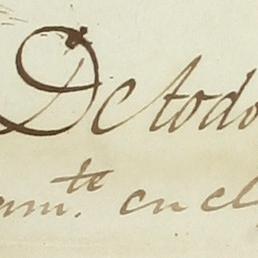 De todo
am.te en el